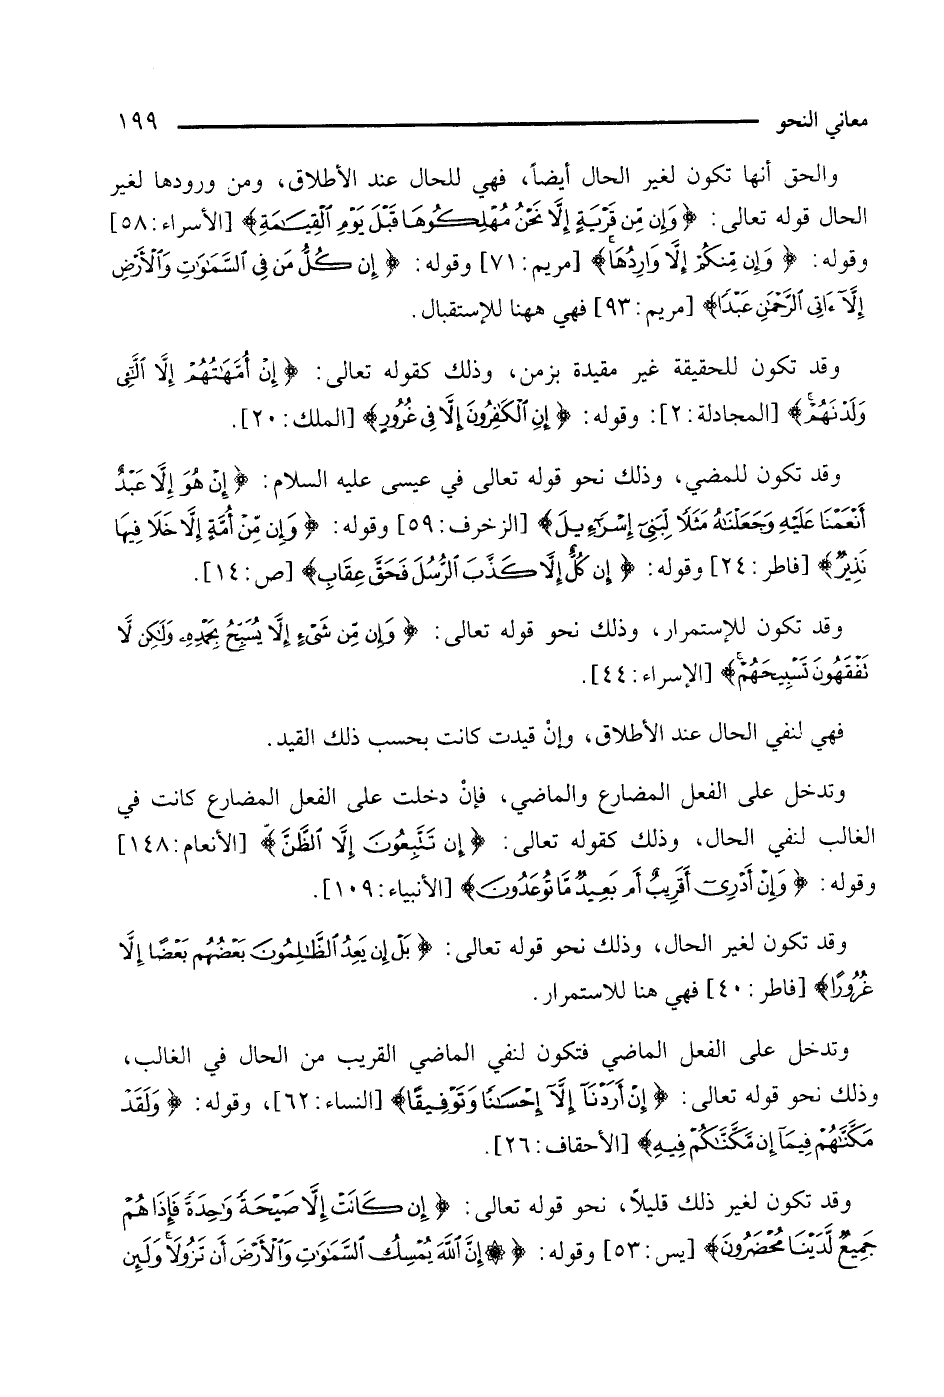 معاني النحو ١٩٩
والحق أنها تكون لغير الحال أيضاً، فهي للحال عند الأطلاق، ومن ورودها لغير
الحال قوله تعالى: ﴿ وَإِن مِّن قَرْيَةٍ إِلَّا نَحْنُ مُهْلِكُوهَا قَبْلَ يَوْمِ ٱلْقِيَٰمَةِ﴾ [الأسراء: ٥٨]
وقوله: ﴿ وَإِن مِّنكُمْ إِلَّا وَارِدُهَا ۚ﴾ [مريم: ٧١] وقوله: ﴿ إِن كُلُّ مَن فِى ٱلسَّمَٰوَٰتِ وَٱلْأَرْضِ
إِلَّآ ءَاتِى ٱلرَّحْمَٰنِ عَبْدًا﴾ [مريم: ٩٣] فهي ههنا للإستقبال.
وقد تكون للحقيقة غير مقيدة بزمن، وذلك كقوله تعالى: ﴿ إِنْ أُمَّهَٰتُهُمْ إِلَّا ٱلَّٰٓـِٔى
وَلَدْنَهُمْ ۚ﴾ [المجادلة: ٢]: وقوله: ﴿ إِنِ ٱلْكَٰفِرُونَ إِلَّا فِى غُرُورٍ﴾ [الملك: ٢٠].
وقد تكون للمضي، وذلك نحو قوله تعالى في عيسى عليه السلام: ﴿ إِنْ هُوَ إِلَّا عَبْدٌ
أَنْعَمْنَا عَلَيْهِ وَجَعَلْنَٰهُ مَثَلًا لِّبَنِىٓ إِسْرَٰٓءِيلَ﴾ [الزخرف: ٥٩] وقوله: ﴿ وَإِن مِّنْ أُمَّةٍ إِلَّا خَلَا فِيهَا
نَذِيرٌ﴾ [فاطر: ٢٤] وقوله: ﴿ إِن كُلٌّ إِلَّا كَذَّبَ ٱلرُّسُلَ فَحَقَّ عِقَابِ﴾ [ص: ١٤].
وقد تكون للإستمرار، وذلك نحو قوله تعالى: ﴿ وَإِن مِّن شَىْءٍ إِلَّا يُسَبِّحُ بِحَمْدِهِۦ وَلَٰكِن لَّا
تَفْقَهُونَ تَسْبِيحَهُمْ ۚ﴾ [الإسراء: ٤٤].
فهي لنفي الحال عند الأطلاق، وإنْ قيدت كانت بحسب ذلك القيد.
وتدخل على الفعل المضارع والماضي، فإنْ دخلت على الفعل المضارع كانت في
الغالب لنفي الحال، وذلك كقوله تعالى: ﴿ إِن تَتَّبِعُونَ إِلَّا ٱلظَّنَّ ﴾ [الأنعام: ١٤٨]
وقوله: ﴿ وَإِنْ أَدْرِىٓ أَقَرِيبٌ أَم بَعِيدٌ مَّا تُوعَدُونَ﴾ [الأنبياء: ١٠٩].
وقد تكون لغير الحال، وذلك نحو قوله تعالى: ﴿ بَلْ إِن يَعِدُ ٱلظَّٰلِمُونَ بَعْضُهُم بَعْضًا إِلَّا
غُرُورًا﴾ [فاطر: ٤٠] فهي هنا للاستمرار.
وتدخل على الفعل الماضي فتكون لنفي الماضي القريب من الحال في الغالب،
وذلك نحو قوله تعالى: ﴿ إِنْ أَرَدْنَآ إِلَّآ إِحْسَٰنًا وَتَوْفِيقًا﴾ [النساء: ٦٢]، وقوله: ﴿ وَلَقَدْ
مَكَّنَّٰهُمْ فِيمَآ إِن مَّكَّنَّٰكُمْ فِيهِ﴾ [الأحقاف: ٢٦].
وقد تكون لغير ذلك قليلاً، نحو قوله تعالى: ﴿ إِن كَانَتْ إِلَّا صَيْحَةً وَٰحِدَةً فَإِذَا هُمْ
جَمِيعٌ لَّدَيْنَا مُحْضَرُونَ﴾ [يس: ٥٣] وقوله: ﴿ ۞إِنَّ ٱللَّهَ يُمْسِكُ ٱلسَّمَٰوَٰتِ وَٱلْأَرْضَ أَن تَزُولَا ۚ وَلَئِن